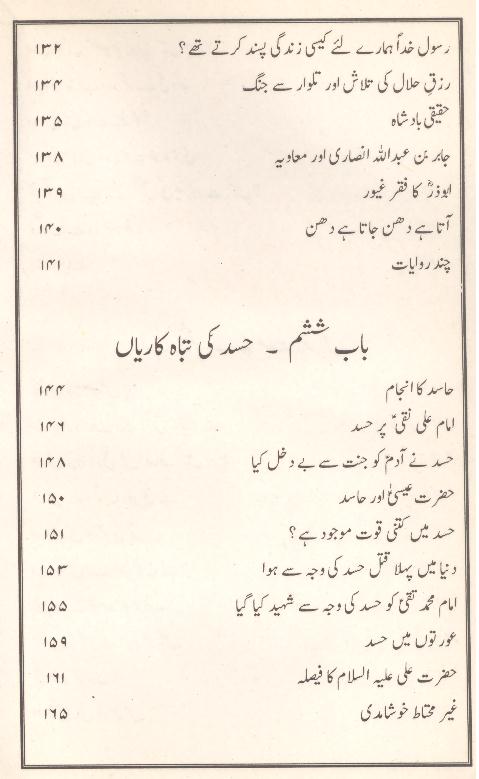 رسول خداؐ ہمارے لئے کیسی زندگی پسند کرتے تھے؟ ۱۳۲
رزق حلال کی تلاش اور تلوار سے جنگ ۱۳۴
حقیقی بادشاہ ۱۳۵
جابر بن عبداللہ انصاری اور معاویہ ۱۳۸
ابوذرؓ کا فقر غیور ۱۳۹
آتا ہے دھن جاتا ہے دھن ۱۴۰
چند روایات ۱۴۱
باب ششم ۔ حسد کی تباہ کاریاں
حاسد کا انجام ۱۴۴
امام علی نقیؑ پر حسد ۱۴۶
حسد نے آدمؑ کو جنت سے بے دخل کیا ۱۴۸
حضرت عیسیٰؑ اور حاسد ۱۵۰
حسد میں کتنی قوت موجود ہے؟ ۱۵۱
دنیا میں پہلا قتل حسد کی وجہ سے ہوا ۱۵۳
امام محمد تقیؑ کو حسد کی وجہ سے شہید کیا گیا ۱۵۵
عورتوں میں حسد ۱۵۹
حضرت علی علیہ السلام کا فیصلہ ۱۶۱
غیر محتاط خوشامدی ۱۶۵